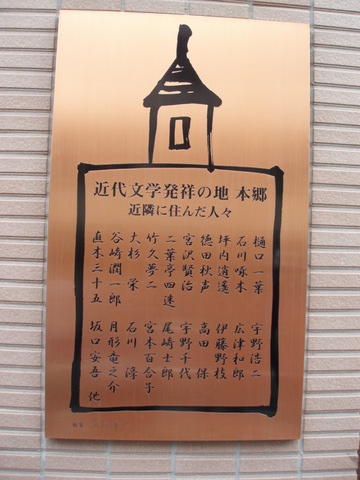 近代文学発祥の地 本郷
近隣に住んだ人々
樋口一葉 宇野浩二
石川啄木 広津和郎
坪内逍遥 伊藤野枝
徳田秋声 高田 保
宮沢賢治 宇野千代
二葉亭四迷 尾崎士郎
竹久夢二 宮本百合子
大杉 栄 石川 淳
谷崎潤一郎 月形竜之介
直木三十五 坂口安吾 他